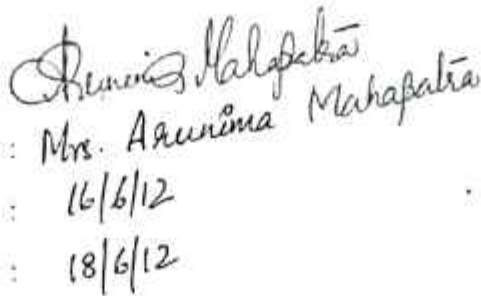 Arunima Mahapatra
: Mrs. Arunima Mahapatra
: 16/6/12
: 18/6/12